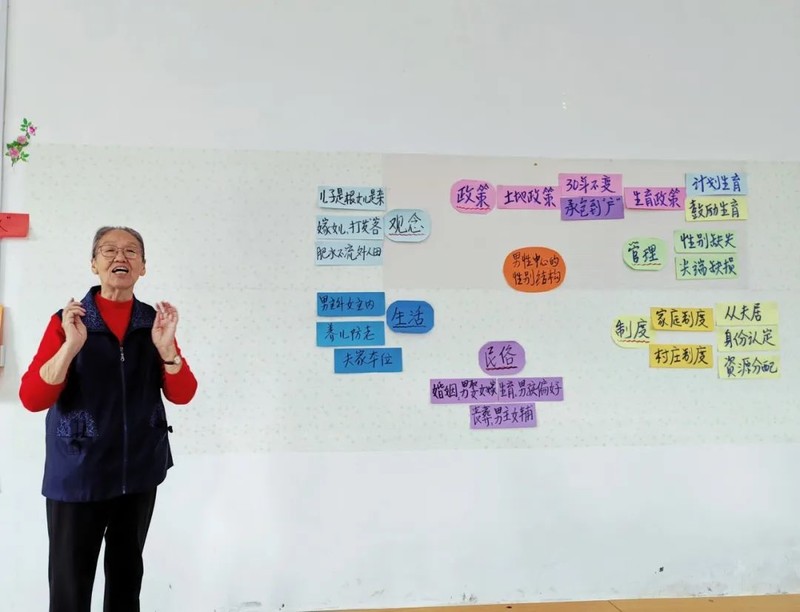 儿子是根女儿是末
嫁女儿,打发客
肥水不流外人田
观念
政策
土地政策
30年不变
承包到"户"
生育政策
计划生育
鼓励生育
男性中心的
性别结构
管理
性别缺失
尖端缺损
男主外女主内
养儿防老
夫家本位
生活
民俗
婚姻,男娶女嫁
生育,男孩偏好
丧葬,男主女辅
制度
家庭制度
村庄制度
从夫居
身份认定
资源分配